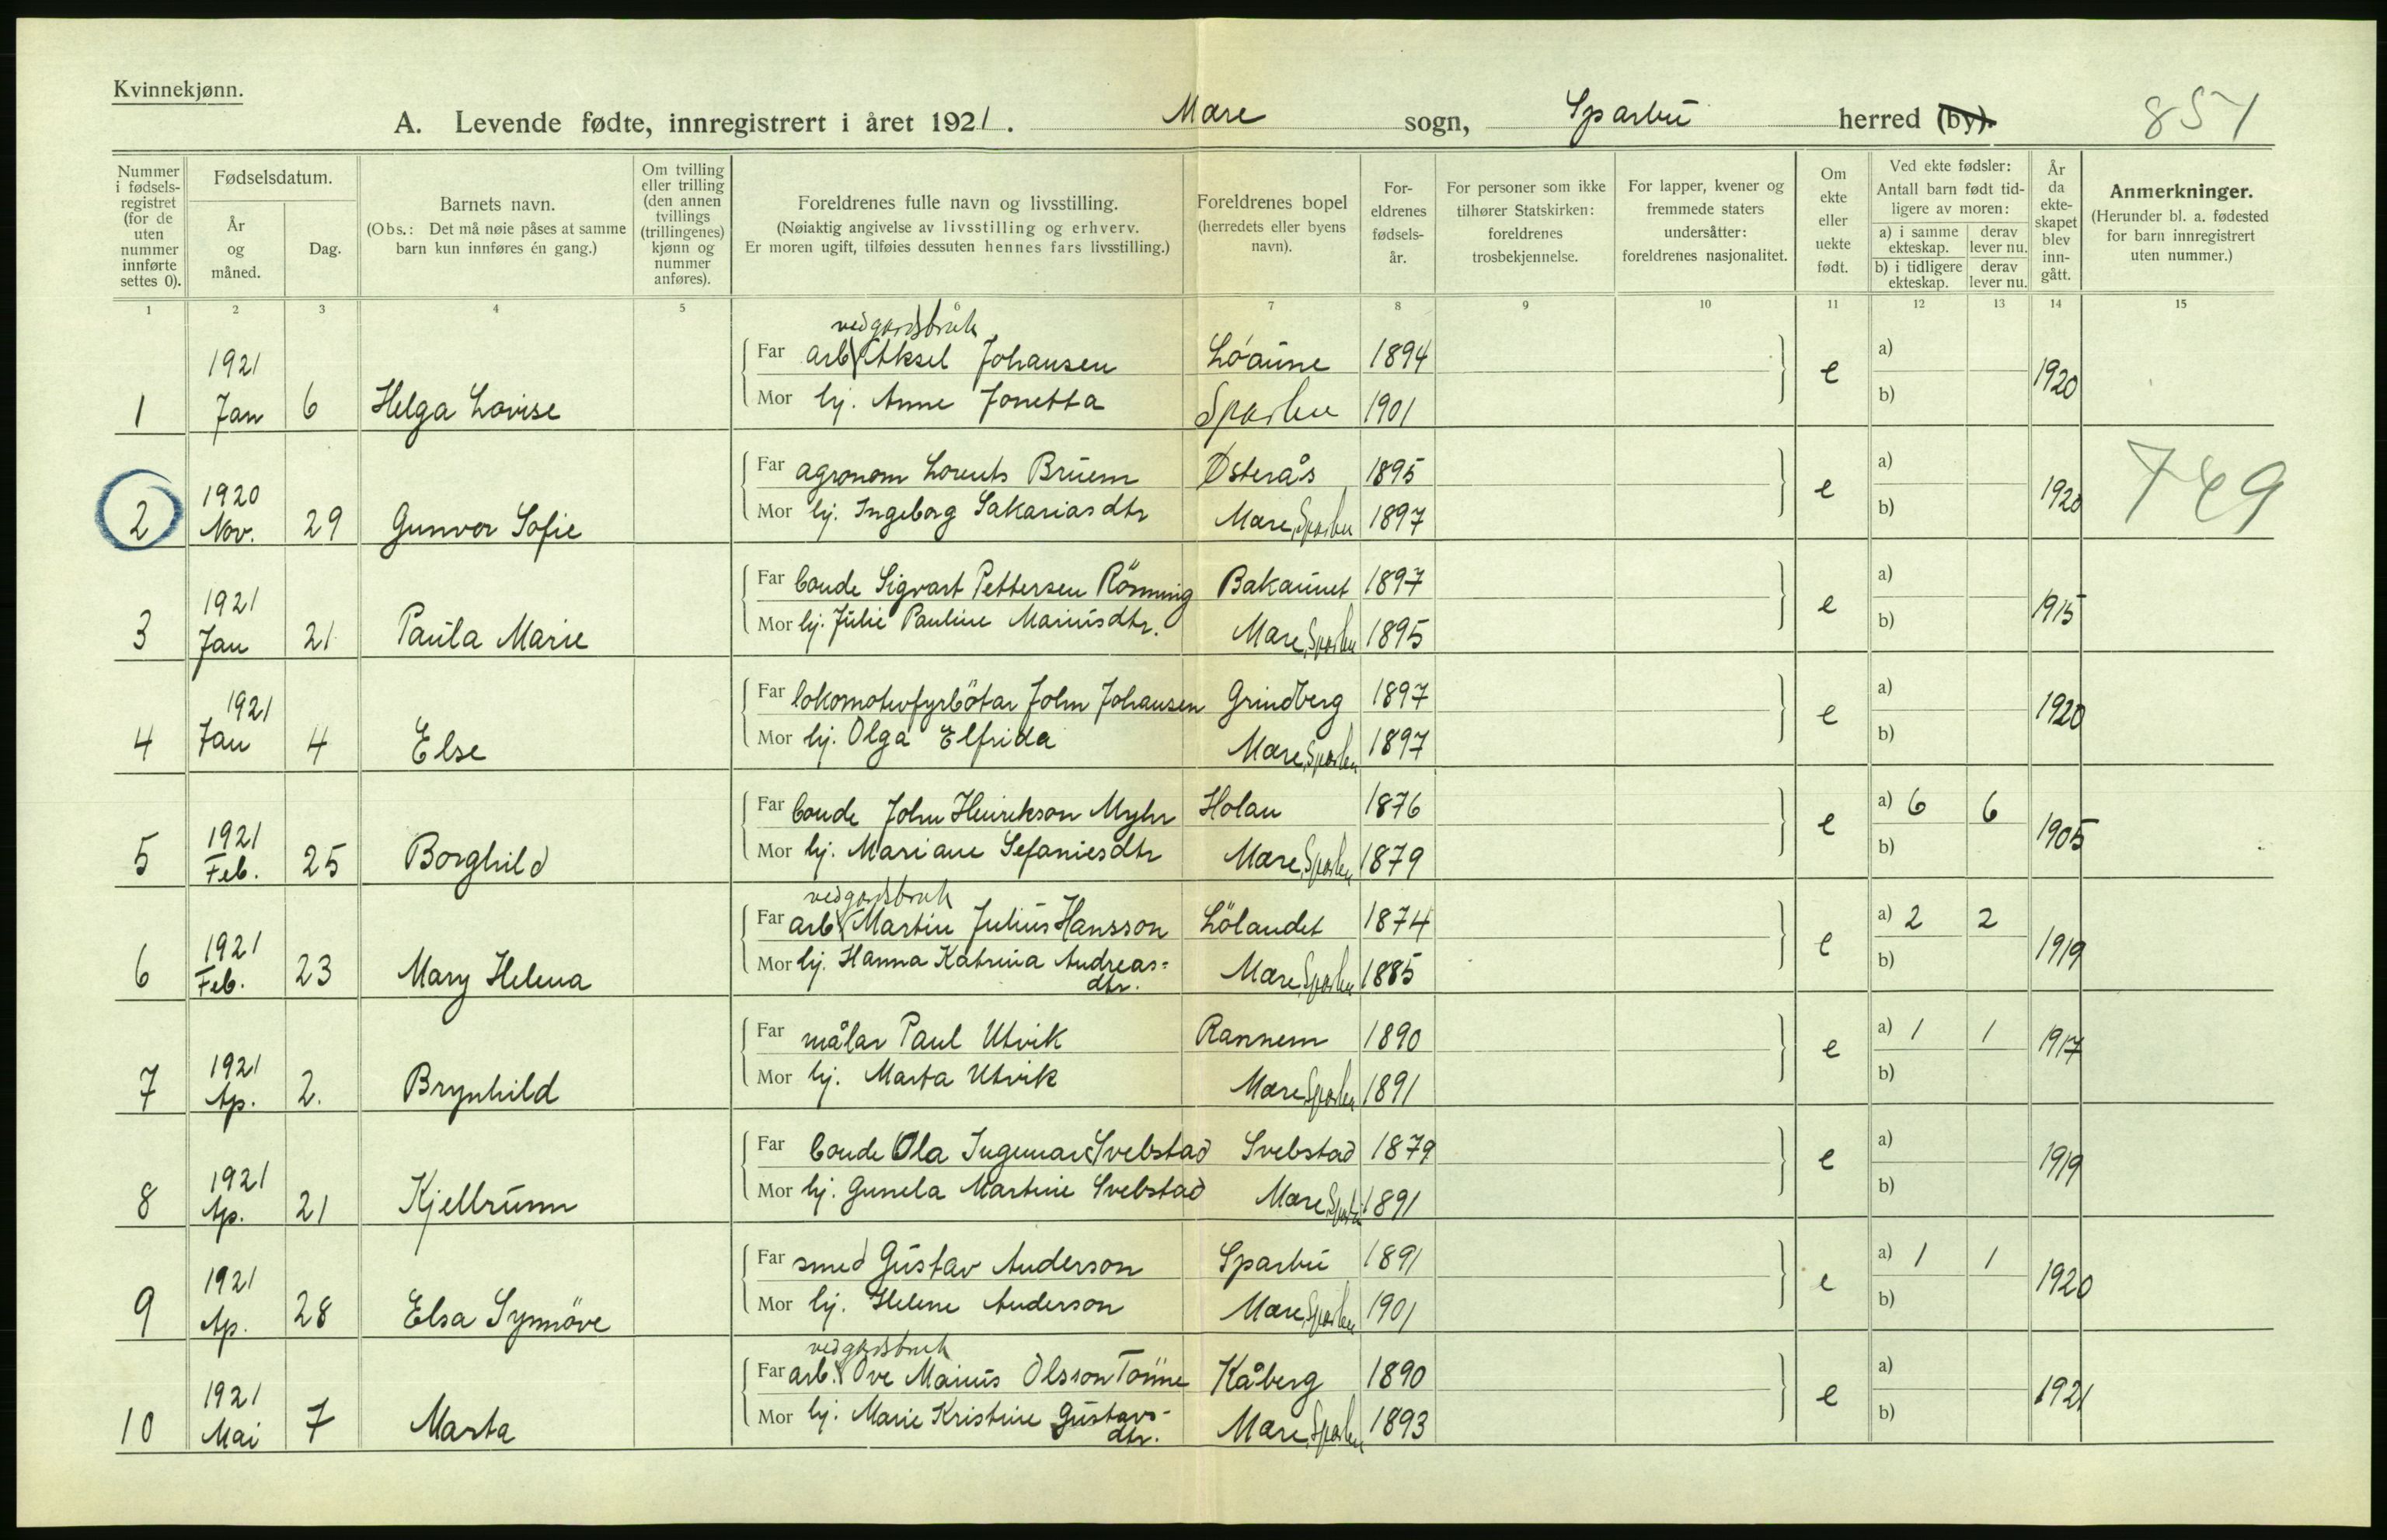 Kvinnekjønn.
A. Levende fødte, innregistrert i året 1921. Mære sogn, Sparbu herred (by). 851
Nummer i fødsels-registret (for de uten nummer innførte settes 0).
Fødselsdatum.
År og måned.
Dag.
Barnets navn.
(Obs.: Det må nøie påses at samme barn kun innføres én gang.)
Om tvilling eller trilling (den annen tvillings (trillingenes) kjønn og nummer anføres).
Foreldrenes fulle navn og livsstilling.
(Nøiaktig angivelse av livsstilling og erhverv.
Er moren ugift, tilføies dessuten hennes fars livsstilling.)
Foreldrenes bopel (herredets eller byens navn).
For-eldrenes fødsels-år.
For personer som ikke tilhører Statskirken: foreldrenes trosbekjennelse.
For lapper, kvener og fremmede staters undersåtter: foreldrenes nasjonalitet.
Om ekte eller uekte født.
Ved ekte fødsler:
Antall barn født tid-ligere av moren:
a) i samme ekteskap.
derav lever nu.
b) i tidligere ekteskap.
derav lever nu.
År da ekte-skapet blev inn-gått.
Anmerkninger.
(Herunder bl. a. fødested for barn innregistrert uten nummer.)
1 2 3 4 5 6 7 8 9 10 11 12 13 14 15
ved gardsbruk
1 1921 Jan 6 Helga Lovise
Far arb. Aksel Johansen Löaune 1894 e a) 1920
Mor hj. Anne Jonetta Sparbu 1901 b)
2 1920 Nov. 29 Gunvor Sofie
Far agronom Lorents Bruem Østerås 1895 e a) 1920 749
Mor hj. Ingeborg Sakariasdtr Mære, Sparbu 1897 b)
3 1921 Jan 21 Paula Marie
Far bonde Sigvart Pettersen Rönning Bakaunet 1897 e a) 1915
Mor hj. Julie Pauline Mariusdtr. Mære, Sparbu 1895 b)
4 1921 Jan 4 Else
Far lokomotivfyrbötar John Johansen Grindberg 1897 e a) 1920
Mor hj. Olga Elfrida Mære, Sparbu 1897 b)
5 1921 Feb. 25 Borghild
Far bonde John Heinrekson Myhr Holan 1876 e a) 6 6 1905
Mor hj. Mariane Sefaniesdtr Mære, Sparbu 1879 b)
ved gardsbruk
6 1921 Feb. 23 Mary Helena
Far arb. Martin Julius Hansson Lölandet 1874 e a) 2 2 1919
Mor hj. Hanna Katrina Andreas=dtr. Mære, Sparbu 1885 b)
7 1921 Ap. 2. Brynhild
Far målar Paul Utvik Rannem 1890 e a) 1 1 1917
Mor hj. Marta Utvik Mære, Sparbu 1891 b)
8 1921 Ap. 21 Kjellrunn
Far bonde Ola Ingemar Svebstad Svebstad 1879 e a) 1919
Mor hj. Gunela Martine Svebstad Mære, Sparbu 1891 b)
9 1921 Ap. 28 Elsa Synnöve
Far smed Gustav Anderson Sparbu 1891 e a) 1 1 1920
Mor hj. Helene Anderson Mære, Sparbu 1901 b)
ved gardsbruk
10 1921 Mai 7 Marta
Far arb. Ove Marius Olsson Tönne Kåberg 1890 e a) 1921
Mor hj. Marie Kristine Gustavs-dtr. Mære, Sparbu 1893 b)